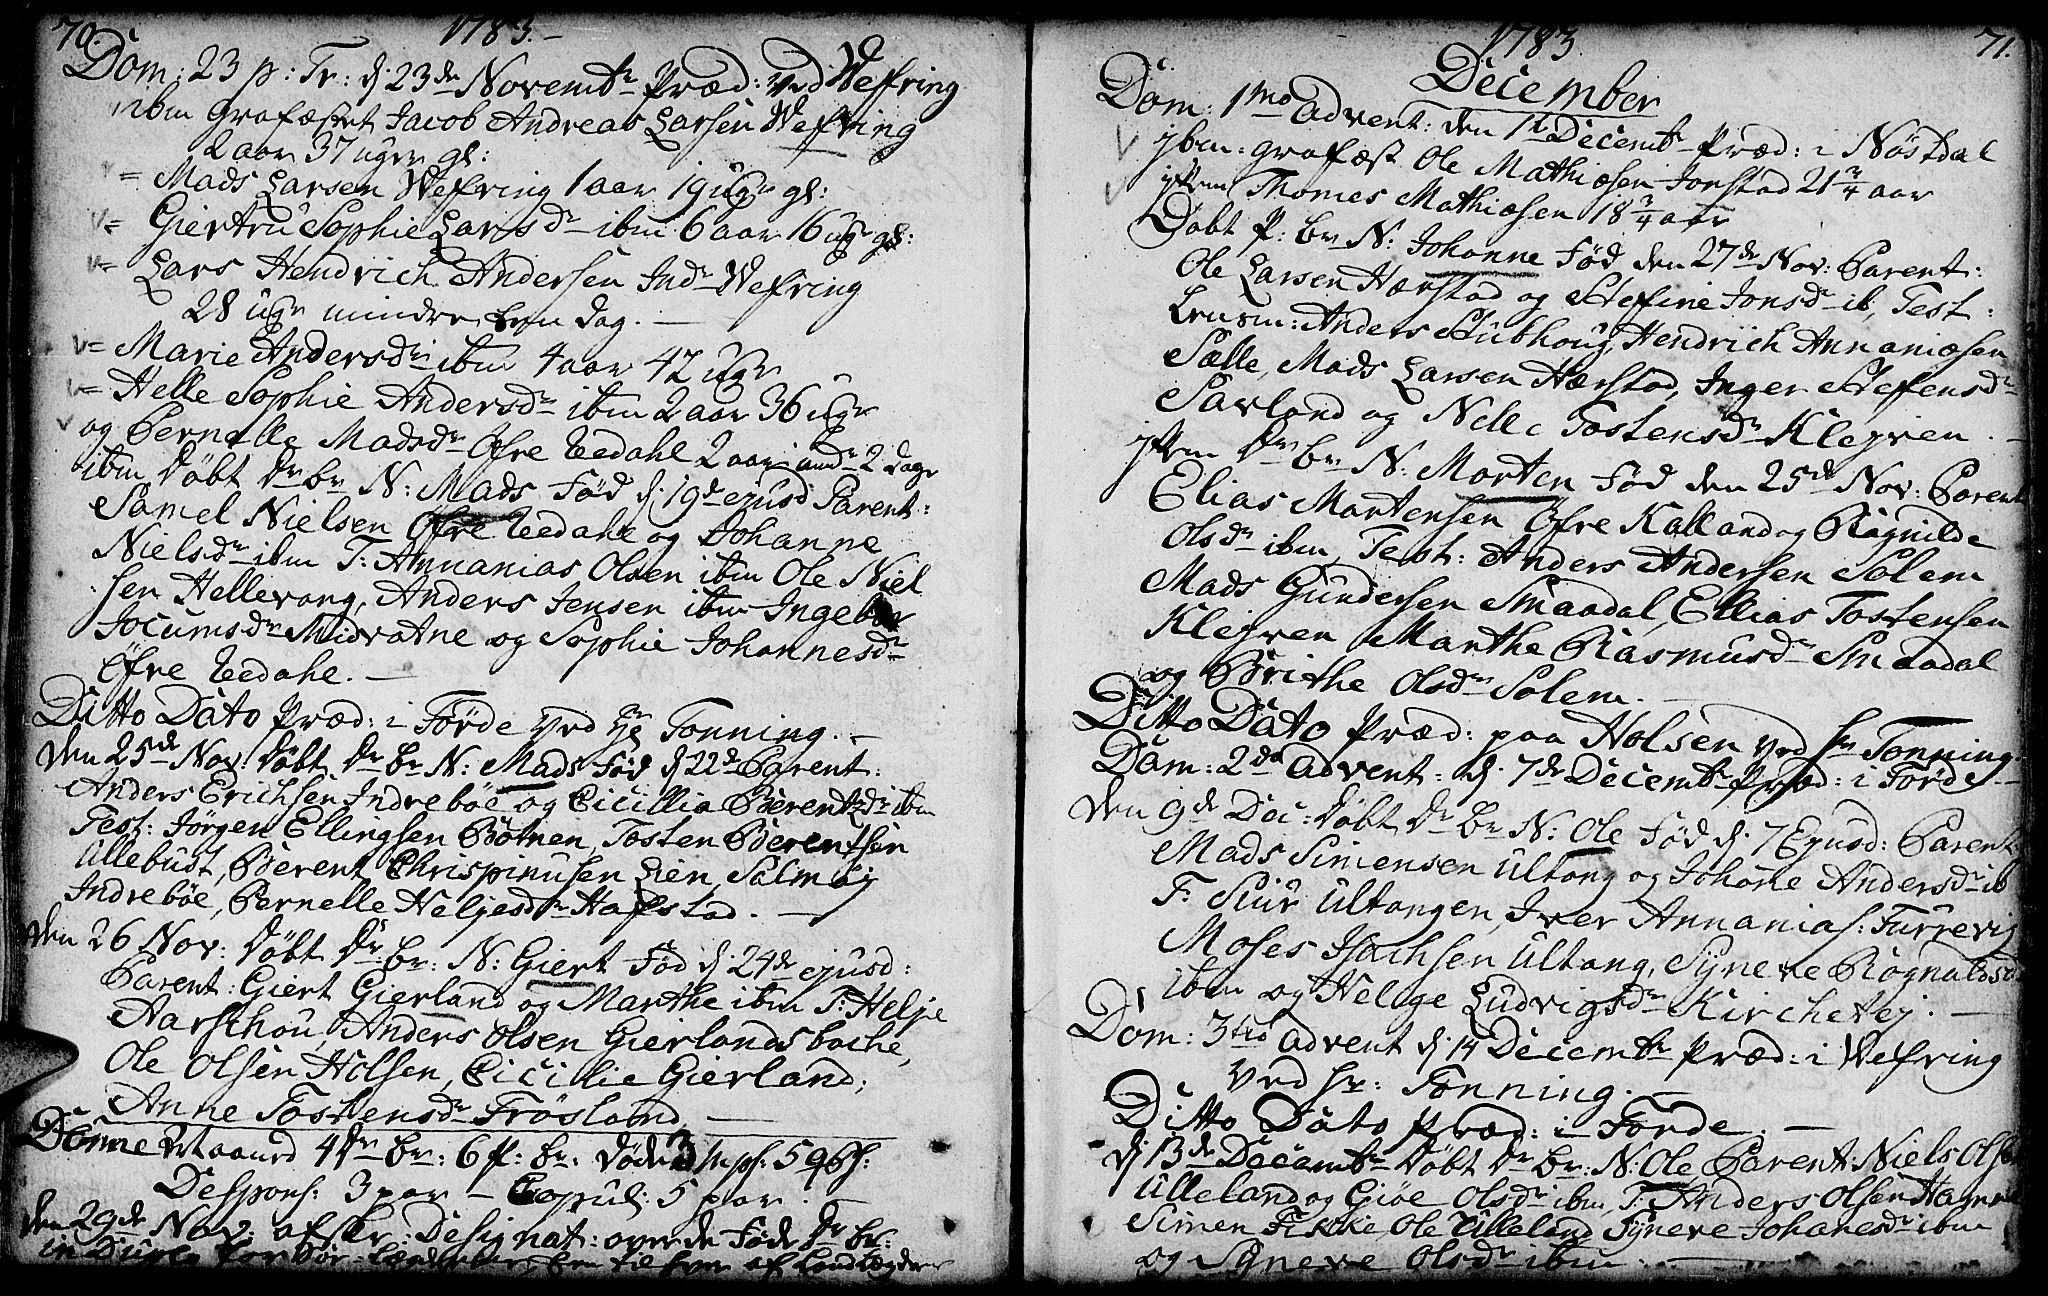 70.
1783.-
Dom: 23 p: Tr: d. 23de Novembr Præd: ved Wefring
ibm Grafæstet Jacob Andreas Larsen Wefring
2 aar 37 uger gl:
= Mads Larsen Wefring 1 aar 19 ugr gl:
v= Giertru Sophie Larsdr ibm 6 aar 16 ugr gl:
v= Lars Hendrich Andersen Indr Wefring
28 ugr mindre een dag. —
v= Marie Andersdr ibm 4 aar 42 ugr
v= Helle Sophie Andersdr ibm 2 aar 36 ugr
v og Pernelle Madsdr Øfre Eedahl 2 aar 2 dage
ibm Døbt Dr br N: Mads Fød d. 19de ejusd Parent:
Samel Nielsen Øfre Eedahl og Johanne
Nielsdr ibm T: Annanias Olsen ibm Ole Niel
sen Hellevang, Anders Jensen ibm Ingebor
Jocumsdr Midvatne og Sophie Johannesdr
Øfre Eedahl. —
Ditto Dato Præd: i Førde ved Hr Tonning. —
Den 25de Nov: Døbt Dr br N: Mads Fød d 22de Parent:
Anders Erichsen Indrebøe og Cicillia Berentsdr ibm
Test: Jørgen Ellingsen Bøtnen, Tosten Berentsen
Ullebust, Berent Chrispinusen Lien, Salmøy
Indrebøe, Pernelle Heljesdr Hafstad. —
Den 26 Nov: Døbt Dr: br: N: Giert Fød d. 24de ejusd:
Parent: Giert Gierland og Marthe ibm T: Helje
Aarschou, Anders Olsen Gierlandsbache,
Ole Olsen Holsen, Cicilie Gierland,
Anne Tostensdr Frøsland —
Denne Maaned 4 Dr br: 6 p: br: døde 3
Despons: 3 par — Copul: 5 par. —
den 29de Nov: afskr: Designat: over de Fød Dr br:
71.
1783
December
Dom: 1mo Advent: den 1te Decembr Præd: i Nøstdal
v ibm: grafæst Ole Mathiesen Jonstad 21 3/4 aar
v item Thomes Mathiesen 18 3/4 aar
Døbt P: br N: Johanne Fød den 27de Nov: Parent:
Ole Larsen Hærstad og Steffine Jonsdr ib, Test:
Lensm: Anders Stubhoug, Hendrich Annaniesen
Sælle, Mads Larsen Hærstad, Inger Steffensdr
Savland og Nelle Tostensdr Klegven. —
item Dr br N: Morten Fød den 25de Nov: Parent
Elias Mortensen Øfre Kalland og Ragnilde
Olsdr ibm, Test: Anders Andersen Solem
Mads Gundersen Smaadal, Ellias Tostensen
Klegven Marthe Rasmusdr Smaadal
og Brithe Olsdr Solem. —
Ditto Dato Præd: paa Holsen ved hr Tonning.
Dom: 2da Advent: d. 7de Decembr Præd: i Førde —
Den 9de Dec: Døbt Dr br N: Ole Fød d. 7 Ejusd: Parent:
Mads Simensen Ultang og Johane Andersdr ib
T: Siur Ultangen, Iver Annanias: Furrevig
Moses Isachsen Ultang, Syneve Rognaldsd
ibm og Helige Ludvigsdr Kirchetej. —
Dom: 3tia Advent d. 14 Decembr Præd: i Wefring
ved hr: Tonning. —
Ditto Dato Præd: i Førde. —
d 13de Decembr Døbt Dr br: N: Ole Parent: Niels Olsen
Ulleland og Giøe Olsdr ibm, T: Anders Olsen Hamne
Simen Fikke, Ole Ulleland Syneve Johanesdr ibm
og Syneve Olsdr ibm —